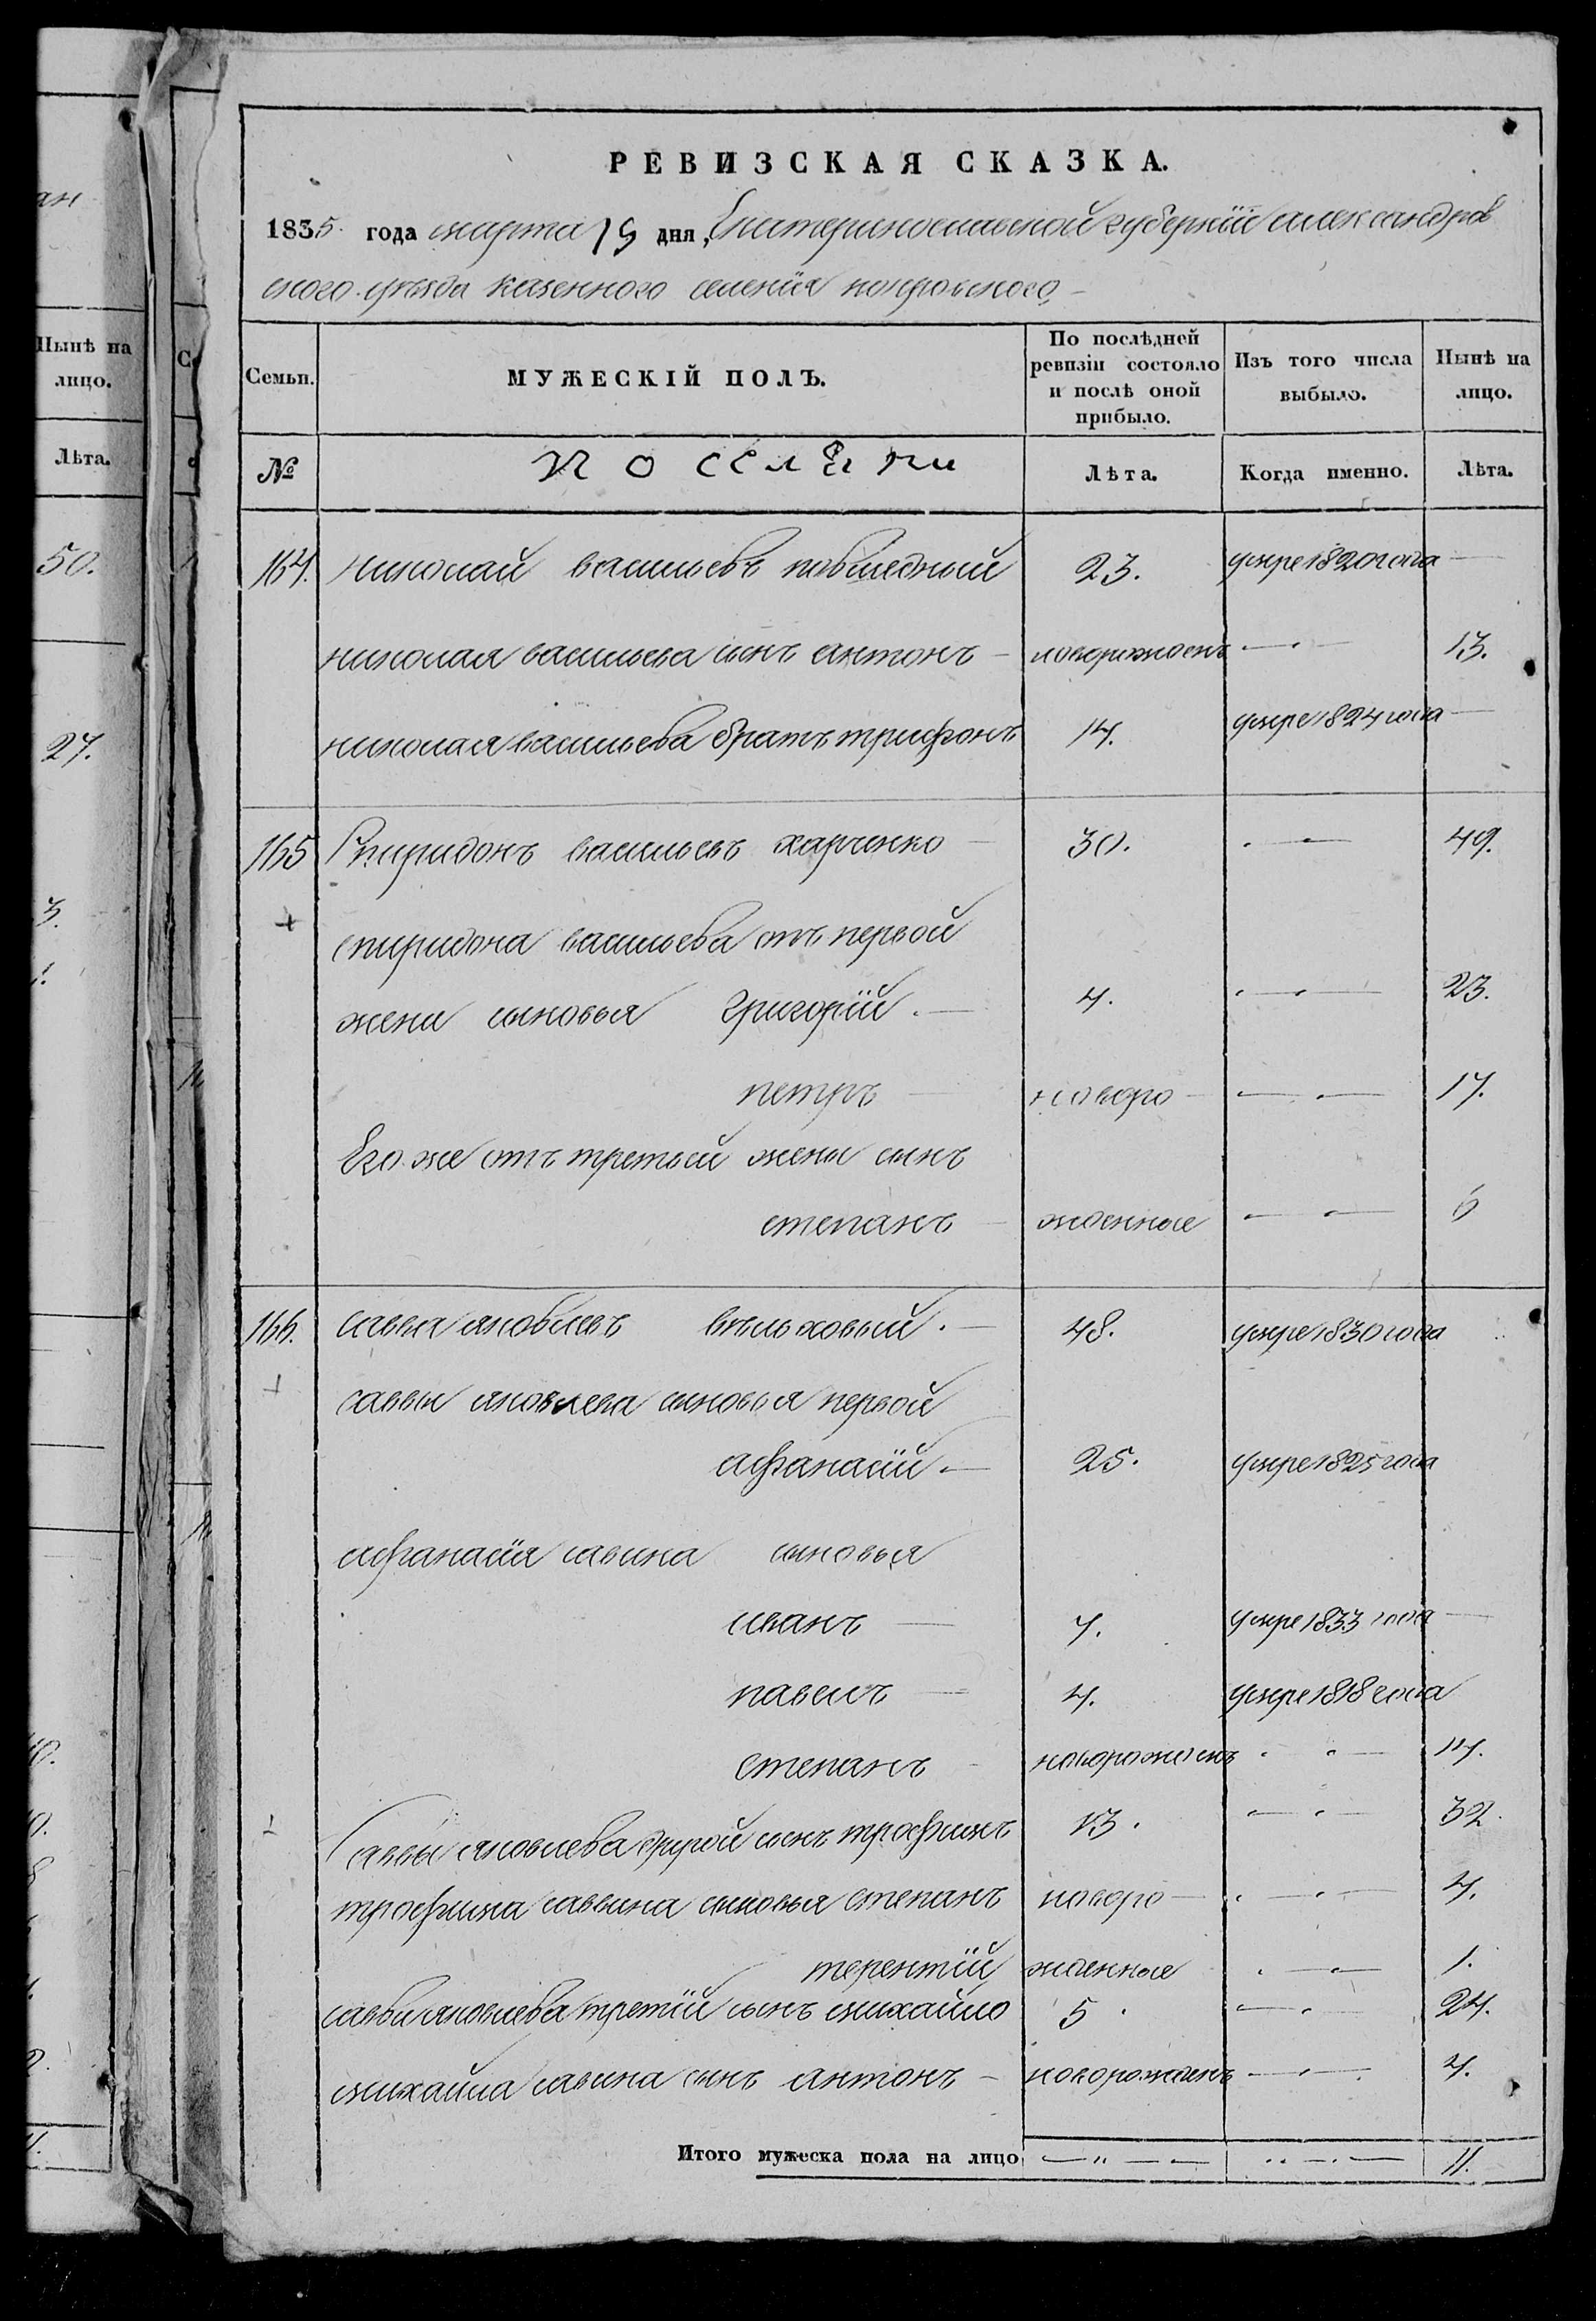 РЕВИЗСКАЯ СКАЗКА.
1835 года марта 19 дня, Екатеринославской губернїи александров
ского уѣзда казенного селенїя покровского
Семьи. МУЖЕСКІЙ ПОЛЪ. По послѣдней ревизіи состояло и послѣ оной прибыло. Изъ того числа выбыло. Нынѣ на лицо.
№ поселяни Лѣта. Когда именно. Лѣта.
164. николай васильевъ 23. умре 1820 года
николая васильева сынъ антонъ новорожденъ 13.
николая васильева братъ трифонъ 14. умре 1824 года
165 Спиридонъ васильевъ харченко 30. 49.
спиридона васильева отъ первой
жени сыновья Григорїй 4. 23.
петръ новоро 17.
Его же отъ третьей жены сынъ
степанъ жденные 6
166. савва яковлевъ вѣльховый 48. умре 1830 года
саввы яковлева сыновья первой
афанасїй 25. умре 1825 года
афанасїя савина сыновья
иванъ 7. умре 1833 года
павелъ 4. умре 1818 года
степанъ новорожденъ 14.
Саввы яковлева другой сынъ трофимъ 13. 32.
трофима саввина сыновья степанъ новоро 4.
терентїй жденные 1.
савви яковлева третїй сынъ михайло 5. 24.
михайла савина сынъ антонъ новорожденъ 4.
Итого мужеска пола на лицо 11.
Нынѣ на
лицо.
Лѣта.
50.
27.
3.